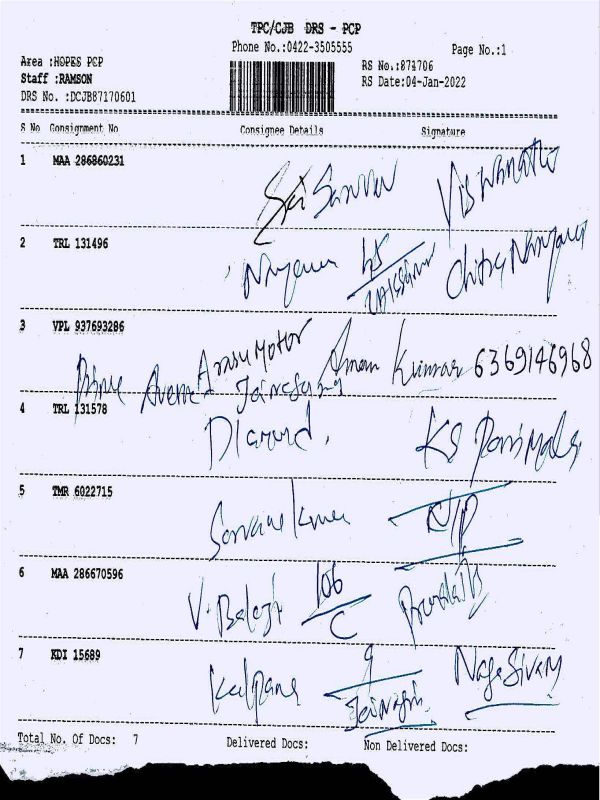 TPC/CJB DRS - PCP
Phone No.:0422-3505555 Page No.:1
Area :HOPES PCP RS No.:871706
Staff :RAMSON RS Date:04-Jan-2022
DRS No. :DCJB87170601
S No Consignment No Consignee Details Signature
1 MAA 286860231
Sai Viswanath
2 TRL 131496
Chitra Narayana
3 VPL 937693286
Arasu Motor Aman Kumar 6369146968
Prime Avenue
4 TRL 131578
Diamond. KS
5 TMR 6022715
N/P
6 MAA 286670596
V. Balaji 106
C
7 KDI 15689
Kalpana 9 Naga Sivam
Total No. Of Docs: 7 Delivered Docs: Non Delivered Docs: